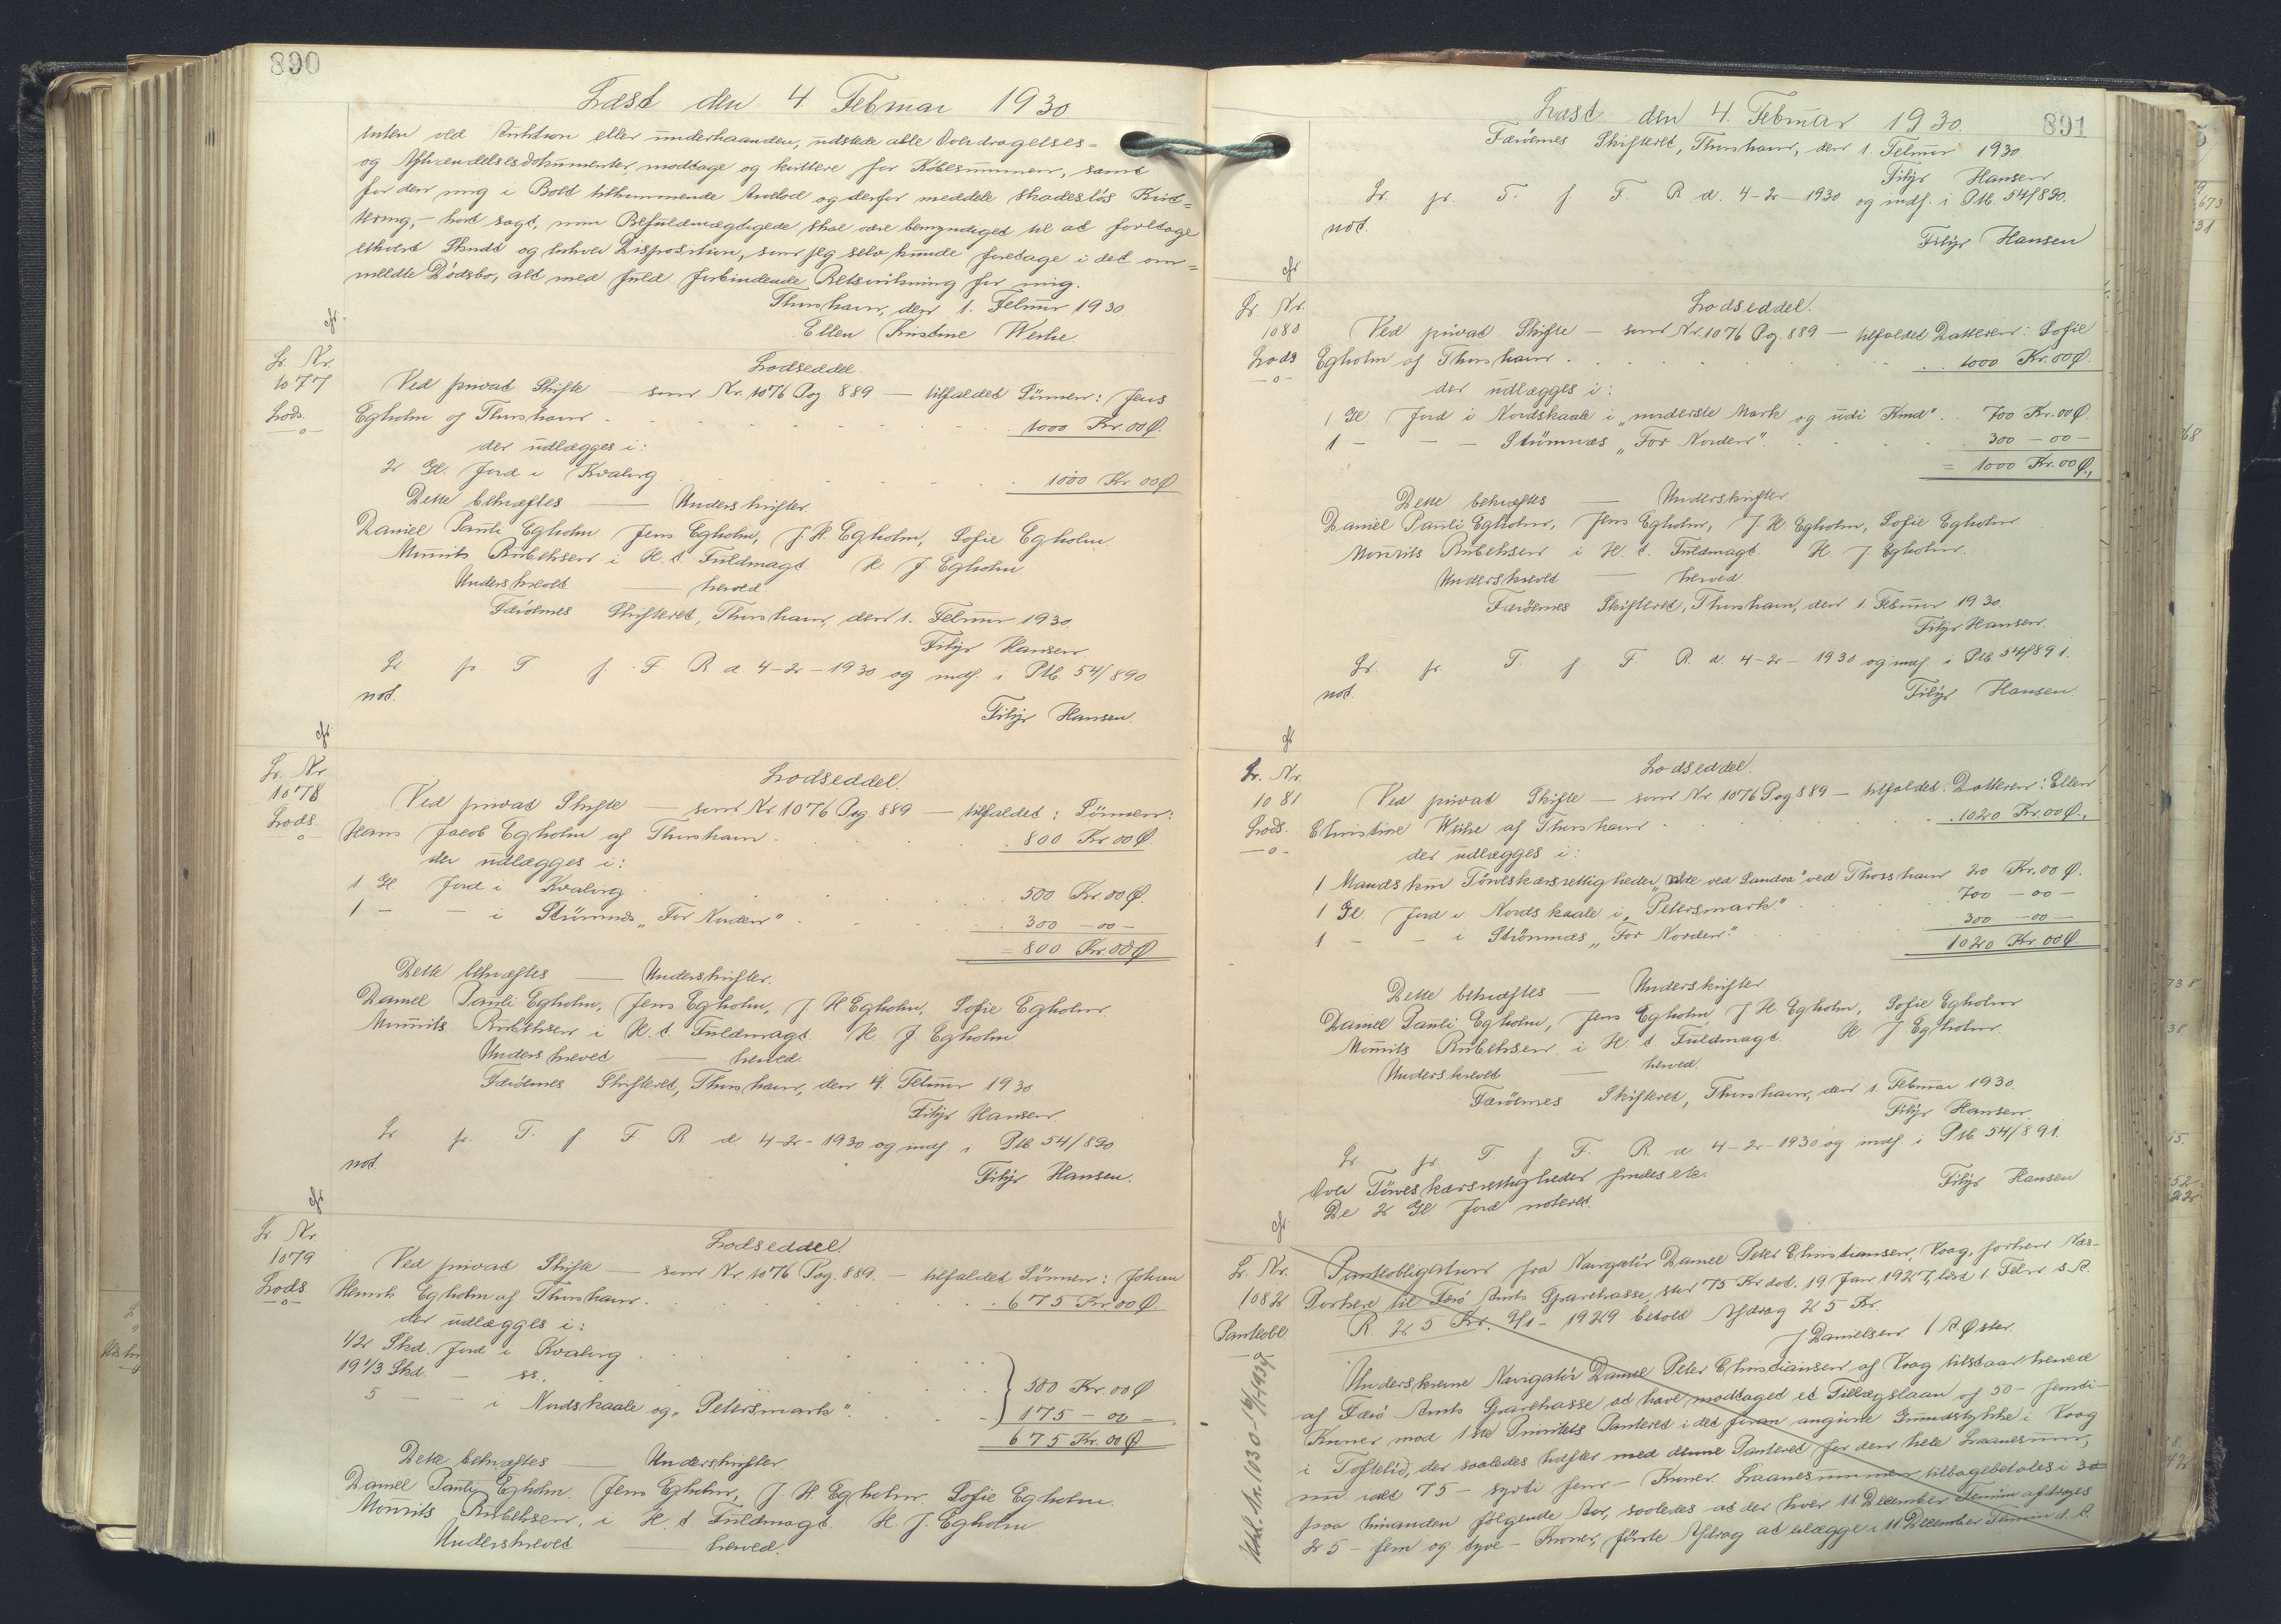 890
Læst den 4. Februar 1930
enten ved Auktion eller underhaanden, udstede alle Overdragelses-
og Afhændelsesdokumenter, modtage og kvittere for Købesummen, samt
for den mig i Boet tilkommende Arvelod og derfor meddele skadesløs Kvit-
tering, – kort sagt, min Befuldmægtigede skal være bemyndiget til at foretage
ethvert Skridt og enhver Disposition, som jeg selv kunde foretage i det om-
meldte Dødsbo, alt med fuld forbindende Retsvirkning for mig.
Thorshavn, den 1. Februar 1930.
Ellen Kristine Weihe.
cfr
Lr. Nr.
1077
Lods.
–o–
Lodseddel
Ved privat Skifte — som Nr. 1076 Pag. 889 — tilfaldet Sønnen: Jens
Egholm af Thorshavn . . . 1000 Kr. 00 Ø.
der udlægges i:
2 Gl. Jord i Kvalvig . . . 1000 Kr. 00 Ø
Dette bekræftes — Underskrifter.
Daniel Pauli Egholm, Jens Egholm, J. H. Egholm, Sofie Egholm.
Mourits Rubeksen i H. t. Fuldmagt. H. J. Egholm
Underskrevet — herved.
Færöernes Skifteret, Thorshavn, den 1. Februar 1930.
Filip Hansen.
Lr. pr. T. f. F. R. d. 4-2-1930 og indf. i Ptb. 54/890
not.
Filip Hansen.
cfr
Lr. Nr.
1078
Lods.
o
Lodseddel.
Ved privat Skifte — som Nr 1076 Pag. 889 — tilfaldet: Sønnen:
Hans Jacob Egholm af Thorshavn . . . 800 Kr. 00 Ø.
der udlægges i:
1 Gl. Jord i Kvalvig . . . 500 Kr. 00 Ø.
1 – – i Strømnæs „For Norden" . . . 300 – 00 –
= 800 Kr. 00 Ø
Dette bekræftes — Underskrifter.
Daniel Pauli Egholm, Jens Egholm, J H Egholm, Sofie Egholm.
Mourits Rubeksen i H. t. Fuldmagt. H. J. Egholm
Underskrevet — herved.
Færöernes Skifteret, Thorshavn, den 4. Februar 1930
Filip Hansen.
Lr pr. T. f. F R. d. 4-2-1930 og indf. i Ptb. 54/890
not
Filip Hansen.
cfr
Lr Nr.
1079
Lods
–o–
Lodseddel.
Ved privat Skifte — som Nr. 1076 Pag. 889. — tilfaldet Sønnen: Johan
Henrik Egholm af Thorshavn . . . 675 Kr. 00 Ø.
der udlægges i:
1/2 Skd. Jord i Kvalvig . . .
19 1/3 Skd. – ss. . . . 500 Kr. 00 Ø
5 – – i Nordskaale og „Petersmark" . . . 175 – 00 –
675 Kr. 00 Ø
Dette bekræftes — Underskrifter.
Daniel Pauli Egholm. Jens Egholm, J. H Egholm. Sofie Egholm.
Mourits Rubeksen, i H. t. Fuldmagt. H. J. Egholm
Underskrevet — herved.
891
Læst den 4. Februar 1930.
Færöernes Skifteret, Thorshavn, den 1. Februar 1930
Filip Hansen
Lr. pr. T. f. F. R. d. 4-2-1930 og indf. i Ptb. 54/890.
not.
Filip Hansen
cfr
Lr. Nr.
1080
Lods
–o–
Lodseddel.
Ved privat Skifte — som Nr. 1076 Pag. 889 — tilfaldet Datteren: Sofie
Egholm af Thorshavn . . . 1000 Kr. 00 Ø.
der udlægges i:
1 Gl Jord i Nordskaale i „nørderste Mark og udi Kmd". 700 Kr. 00 Ø.
1 – – – Strömnæs „For Norden". . . . 300 – 00 –
= 1000 Kr. 00 Ø.
Dette bekræftes — Underskrifter
Daniel Pauli Egholm, Jens Egholm, J. H. Egholm, Sofie Egholm.
Mourits Rubeksen i H. t. Fuldmagt. H. J. Egholm.
Underskrevet — herved
Færöernes Skifteret, Thorshavn, den 1. Februar 1930.
Filip Hansen.
Lr. pr. T. f. F. R. d. 4-2-1930 og indf. i Ptb. 54/891.
not.
Filip Hansen.
cfr
Lr. Nr.
1081
Lods.
–o–
Lodseddel.
Ved privat Skifte — som Nr 1076 Pag 889 — tilfaldet: Datteren: Ellen
Christine Weihe af Thorshavn . . . 1020 Kr. 00 Ø.
der udlægges i:
1 Mands Törveskærsrettigheder ved Sandaa" ved Thorshavn 20 Kr. 00 Ø.
1 Gl. Jord i Nordskaale i „Petersmark". . . . 700 – 00 –
1 – – i Strömnæs „For Norden." . . . 300 – 00 –
1020 Kr 00 Ø
Dette bekræftes — Underskrifter
Daniel Pauli Egholm, Jens Egholm J. H. Egholm, Sofie Egholm
Mourits Rubeksen. i H. t. Fuldmagt. H. J Egholm.
Underskrevet — herved.
Færöernes Skifteret, Thorshavn, den 1. Februar 1930.
Filip Hansen.
Lr. pr. T. f. F. R. d. 4-2-1930 og indf. i Ptb. 54/891.
Over Törveskærsrettigheder findes etc.
Filip Hansen
De 2 Gl Jord noteret.
cfr
Lr. Nr.
1082
Panteobl.
–o–
Panteobligation fra Navigatör Daniel Peter Christiansen, Vaag, forhen Næs-
Porkere til Færö Amts Sparekasse, stor 75 Kr. dat. 19 Jan 1927, læst 1. Febr s. A.
R. 25 Kr. 2/1 - 1929 betalt Afdrag 25 Kr.
J Danielsen / A. Øster.
Underskrevne Navigatör Daniel Peter Christiansen af Vaag tilstaar herved
af Færö Amts Sparekasse at have modtaget et Tillægslaan af 50 – femti –
Kroner mod 1ste Prioritets Panteret i det foran angivne Grundstykke i Vaag
i Toftelid, der saaledes hæfter med denne Panteret for den hele Laanesum,
nu ialt 75 – syvti fem – Kroner. Laanesummen tilbagebetales i 3
paa hinanden følgende Aar, saaledes at der hver 11 December Termin afdrages
25 – fem og tyve – Kroner, første Afdrag at erlægge i 11 December Termin d. A.